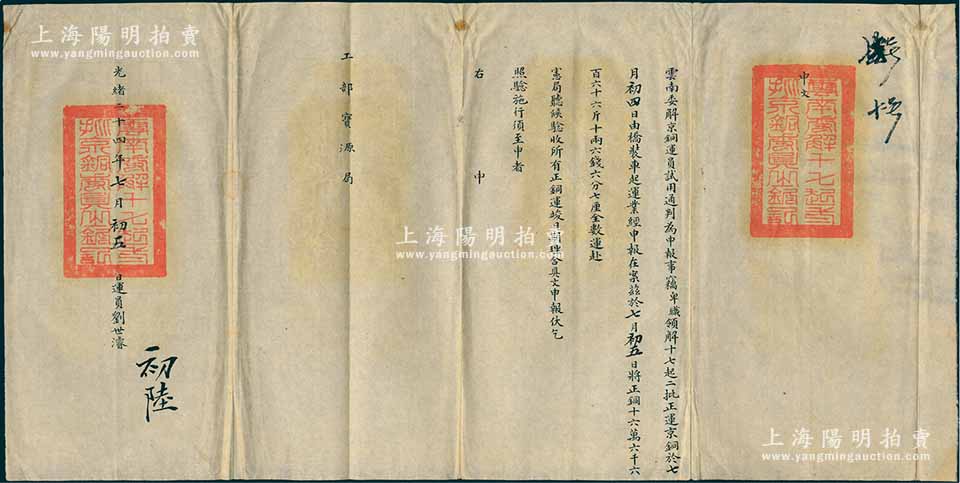 申文
雲南委解京銅運員試用通判為申報事竊卑職領解十七起二批正運京銅於七
月初四日由橋裝車起運業經申報在案茲於七月初五日將正銅十六萬六千六
百六十六斤十兩六錢六分七厘全數運赴
憲局聽候驗收所有正銅運竣日期理合具文申報伏乞
照驗施行須至申者
右 申
工部寶源局
光緒二十四年七月初五日運員劉世濬
初陸
上海陽明拍賣
www.yangmingauction.com
上海陽明拍賣
www.yangmingauction.com
上海陽明拍賣
www.yangmingauction.com